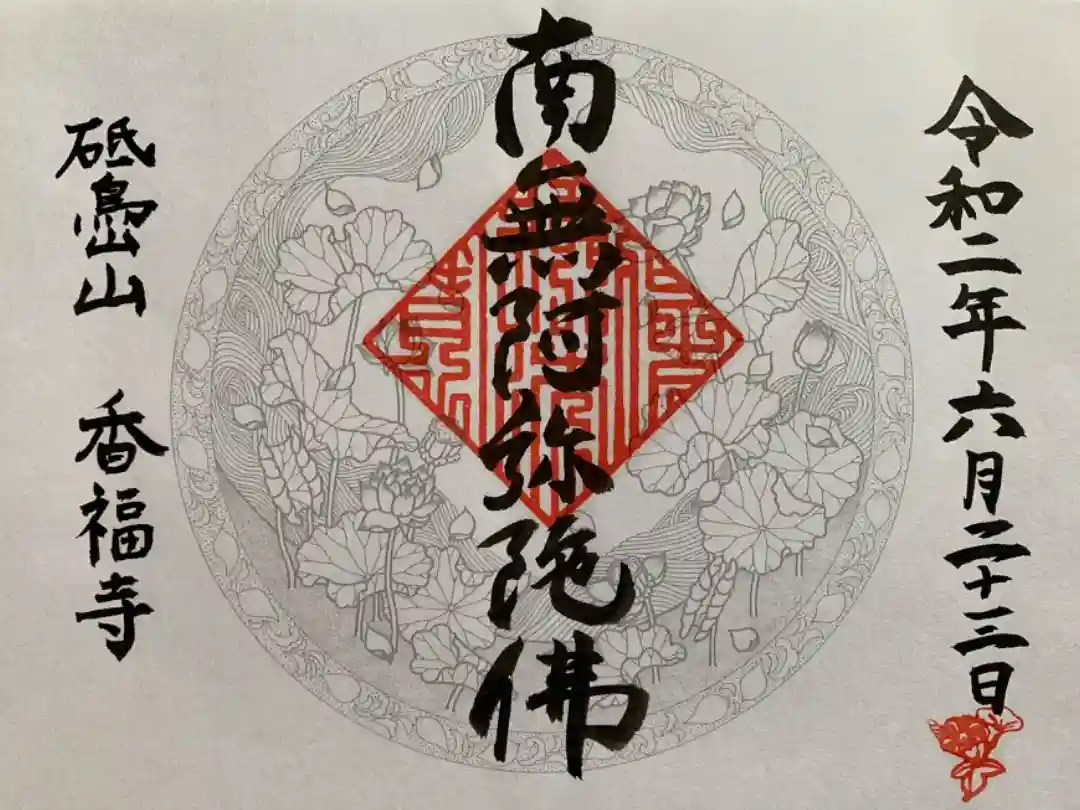 令和二年六月二十三日
南無阿弥陀佛
砥島山 香福寺